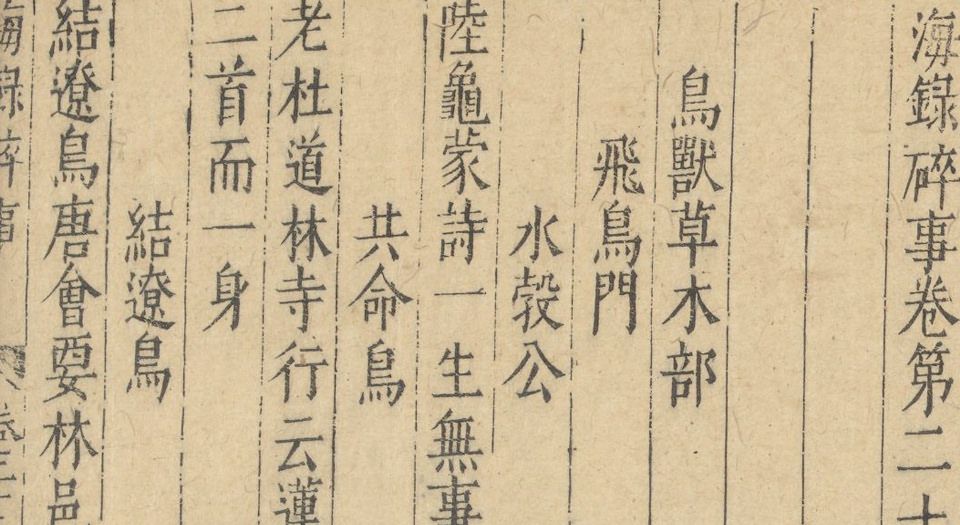 海録碎事卷第二十
鳥獸草木部
飛鳥門
水㝅公
陸龜蒙詩一生無事
共命鳥
老杜道林寺行云蓮
二首而一身
結遼鳥
結遼鳥唐會要林邑
海録碎事